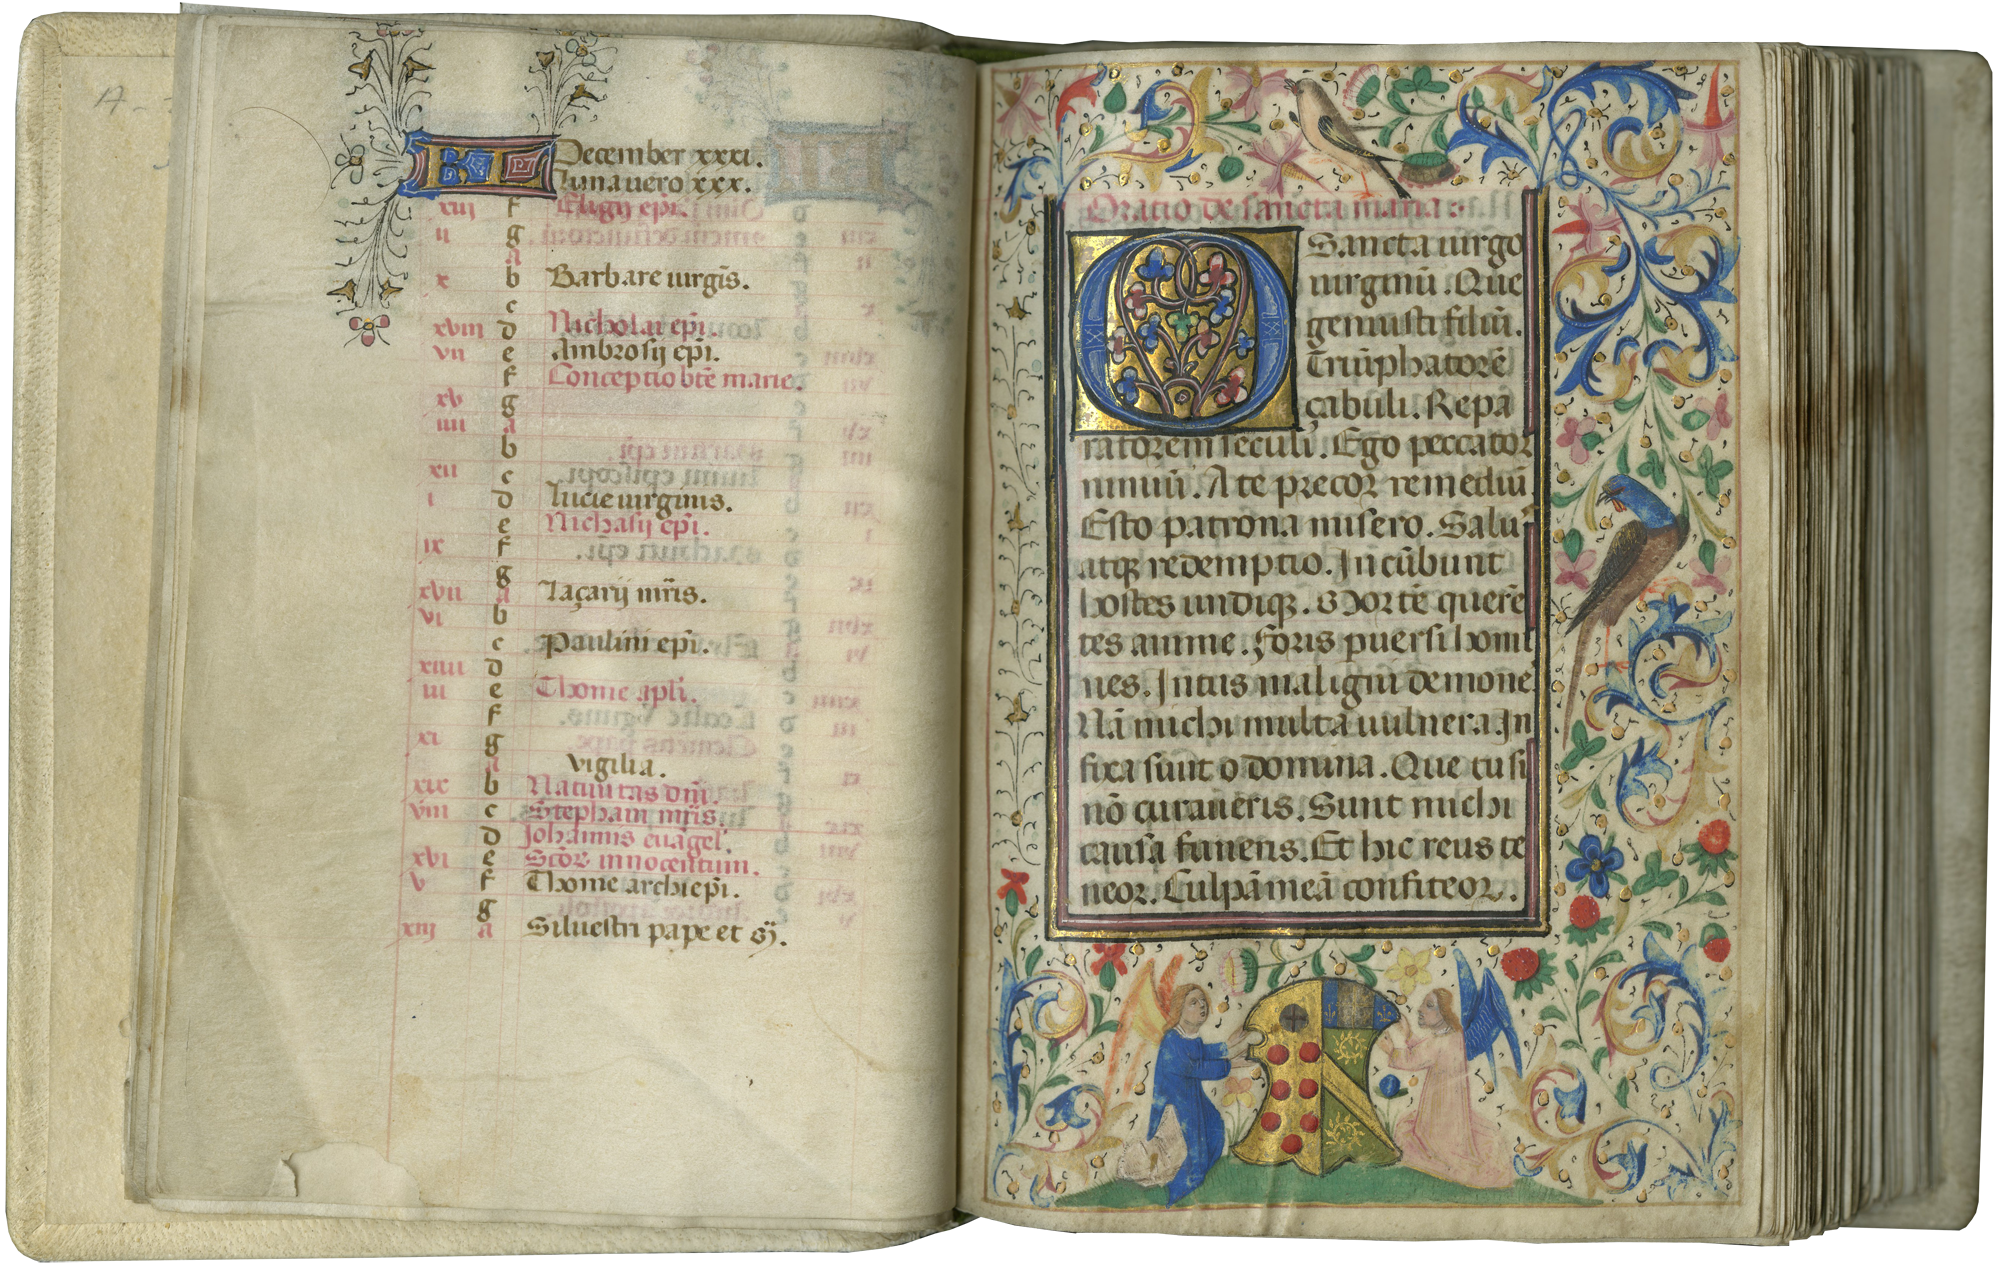 A -
KL December xxxi.
Luna uero xxx.
xiij f Eligij epi.
ii g
a
x b Barbare uirgis.
c
xviii d Nicholai epi.
vii e Ambrosij epi.
f Conceptio bte marie.
xv g
iiii a
b
xii c
i d Lucie uirginis.
e Nichasij epi.
ix f
g
xvii a Laçarij mris.
vi b
c Paulini epi.
xiiii d
iii e Thome apli.
f
xi g
a vigilia.
xix b Natiuitas dni.
viii c Stephani mris.
d Johannis euagel.
xvi e Scor innocentum.
v f Thome archiepi.
g
xiij a Siluestri pape et
Oratio de sancta maria.
O Sancta uirgo
uirginū. Que
genuisti filiū.
Triūphatorē
çabuli. Repa
ratorem seculi. Ego peccator
nimiū. A te precor remediū.
Esto patrona misero. Salu
atq redemptio. Incūbunt
hostes undiq. Mortē querē
tes anime. Foris puersi homi
nes. Intus maligni demone
Nā michi multa uulnera. In
fixa sūnt o domina. Que tu si
nō curaueris. Sunt michi
causa funeris. Et hic reus te
neor. Culpā meā confiteor.